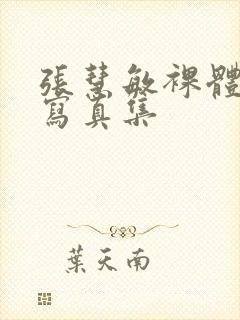 張慧敏裸體
寫真集
葉天南